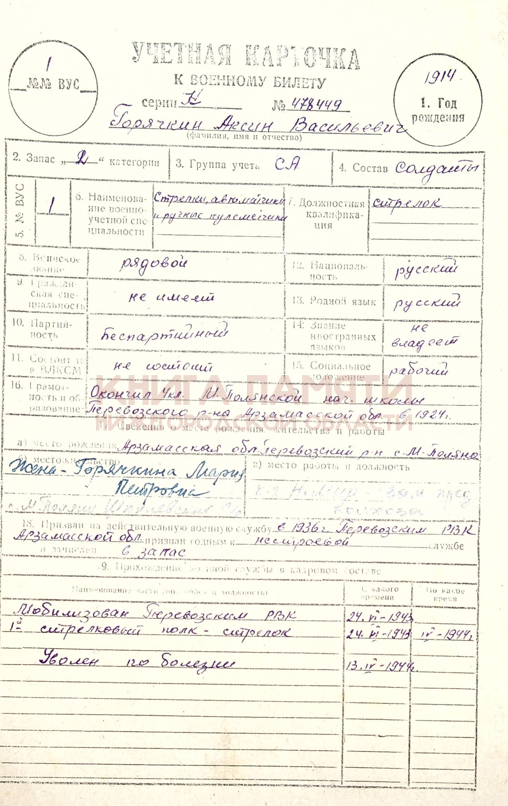 1
№№ ВУС
УЧЕТНАЯ КАРТОЧКА
К ВОЕННОМУ БИЛЕТУ
серии № 478449
1914.
1. Год
рождения
Горячкин Аксин Васильевич
(фамилия, имя и отчество)
2. Запас „2“ категории
3. Группа учета СА
4. Состав Солдаты
5. № ВУС
1
6. Наименова-
ние военно-
учетной спе-
циальности
Стрелки, автоматчики
и ручные пулеметчики
7. Должностная
квалифика-
ция
стрелок
8. Воинское
звание
рядовой
12. Националь-
ность
русский
9. Граждан-
ская спе-
циальность
не имеет
13. Родной язык
русский
10. Партий-
ность
беспартийный
14. Знание
иностранных
языков
не
владеет
11. Состоит ли
в ВЛКСМ
не состоит
15. Социальное
положение
рабочий
16. Грамот-
ность и об-
разование
Окончил 4кл. М.Полянской нач. школы
Перевозского р-на Арзамасской обл. в 1924г.
КНИГА ПАМЯТИ
НИЖЕГОРОДСКОЙ ОБЛАСТИ
а) место рождения Арзамасская обл. Перевозский р-н с-М-Поляна
Жена - Горячкина Мария
Петровна
в) место работы и должность
18. Призван на действительную военную службу в 1936г. Перевозским РВК
Арзамасской обл. признан годным к нестроевой службе
и зачислен в запас
19. Прохождение военной службы в кадровом составе
С какого
времени
По какое
время
Мобилизован Перевозским РВК 24.VI-1943
1й стрелковый полк - стрелок 24.VI-1943 IV-1944г.
Уволен по болезни 13.IV-1944г.